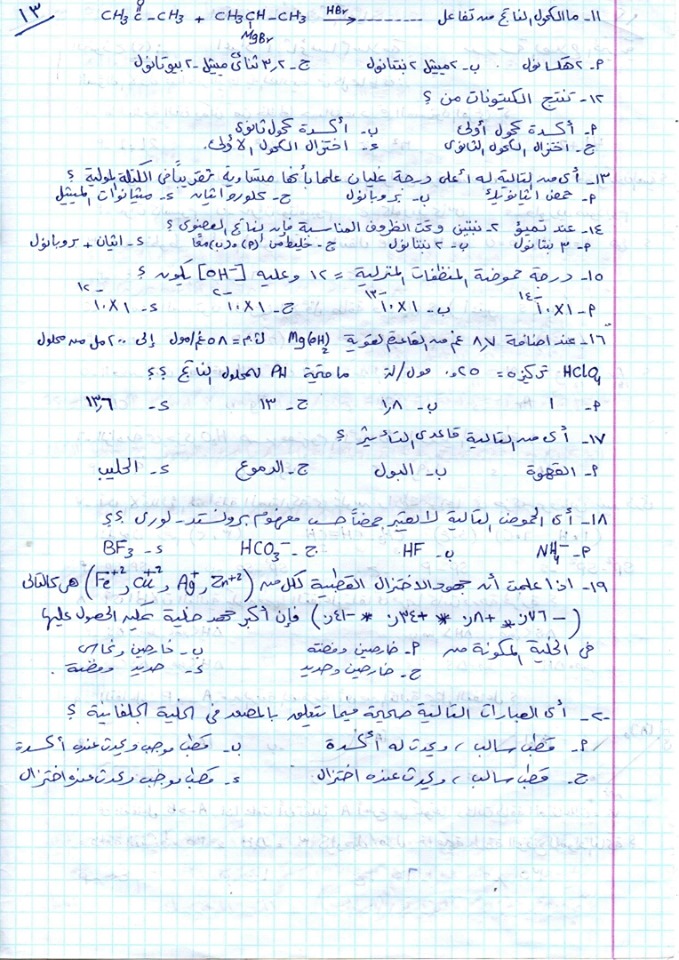 ١٣
١١- ما الكحول الناتج من تفاعل CH₃C̈–CH₃ + CH₃CH–CH₃ HBr → ........
O
MgBr
٢- P هكسانول ب- ٢ ميثيل ٢ بنتانول ج- ٣,٢ ثنائي ميثيل -٢ بيوتانول
١٢- تنتج الكيتونات من ؟
P- أكسدة كحول أولي ب- أكسدة كحول ثانوي
ج- اختزال الكحول الثانوي د- اختزال الكحول الأولي.
١٣- أي من التالية له أعلى درجة غليان علماً بأنها متساوية تقريباً في الكتلة المولية ؟
P- حمض الإيثانويك ب- بروبانول ج- كلورو ايثان د- ميثانوات الميثيل
١٤- عند تميؤ ٢- بنتين وتحت الظروف المناسبة فإن الناتج العضوي ؟
P- ٣ بنتانول ب- ٢ بنتانول ج- خليط من (P) و (ب) معاً د- ايثان + بروبانول
١٥- درجة حموضة المنظفات المنزلية = ١٢ وعليه [OH⁻] يكون ؟
P- ١×١٠⁻¹⁴ ب- ١×١٠⁻¹³ ج- ١×١٠⁻² د- ١×١٠⁻¹²
١٦- عند اضافة ٨,٧ غم من القاعدة القوية Mg(OH)₂ ك.م = ٥٨ غم/مول إلى ٢٠٠ مل من محلول
HClO₄ تركيزه = ٢٥و. مول/لتر ما قيمة PH للمحلول الناتج ؟؟
P- ١ ب- ١,٨ ج- ١٣ د- ١٣,٦
١٧- أي من التالية قاعدي التأثير ؟
P- القهوة ب- البول ج- الدموع د- الحليب
١٨- أي الحموض التالية لا يعتبر حمضاً حسب مفهوم برونستد - لوري ؟؟
P- NH₄⁻ ب- HF ج- HCO₃⁻ د- BF₃
١٩- اذا علمت أن جهود الاختزال القطبية لكل من (Fe⁺², Cu⁺², Ag⁺, Zn⁺²) هي كالتالي
(-٧٦و. * +٨و. * +٣٤و. * -٤١و.) فإن أكبر جهد خلية يمكن الحصول عليها
في الخلية المكونة من P- خارصين وفضة ب- خارصين ونحاس
ج- خارصين وحديد د- حديد وفضة.
٢٠- أي العبارات التالية صحيحة فيما يتعلق بالمصعد في الخلية الجلفانية ؟
P- قطب سالب ، ويحدث له أكسدة ب- قطب موجب ويحدث عنده أكسدة
ج- قطب سالب ، ويحدث عنده اختزال د- قطب موجب ويحدث عنده اختزال